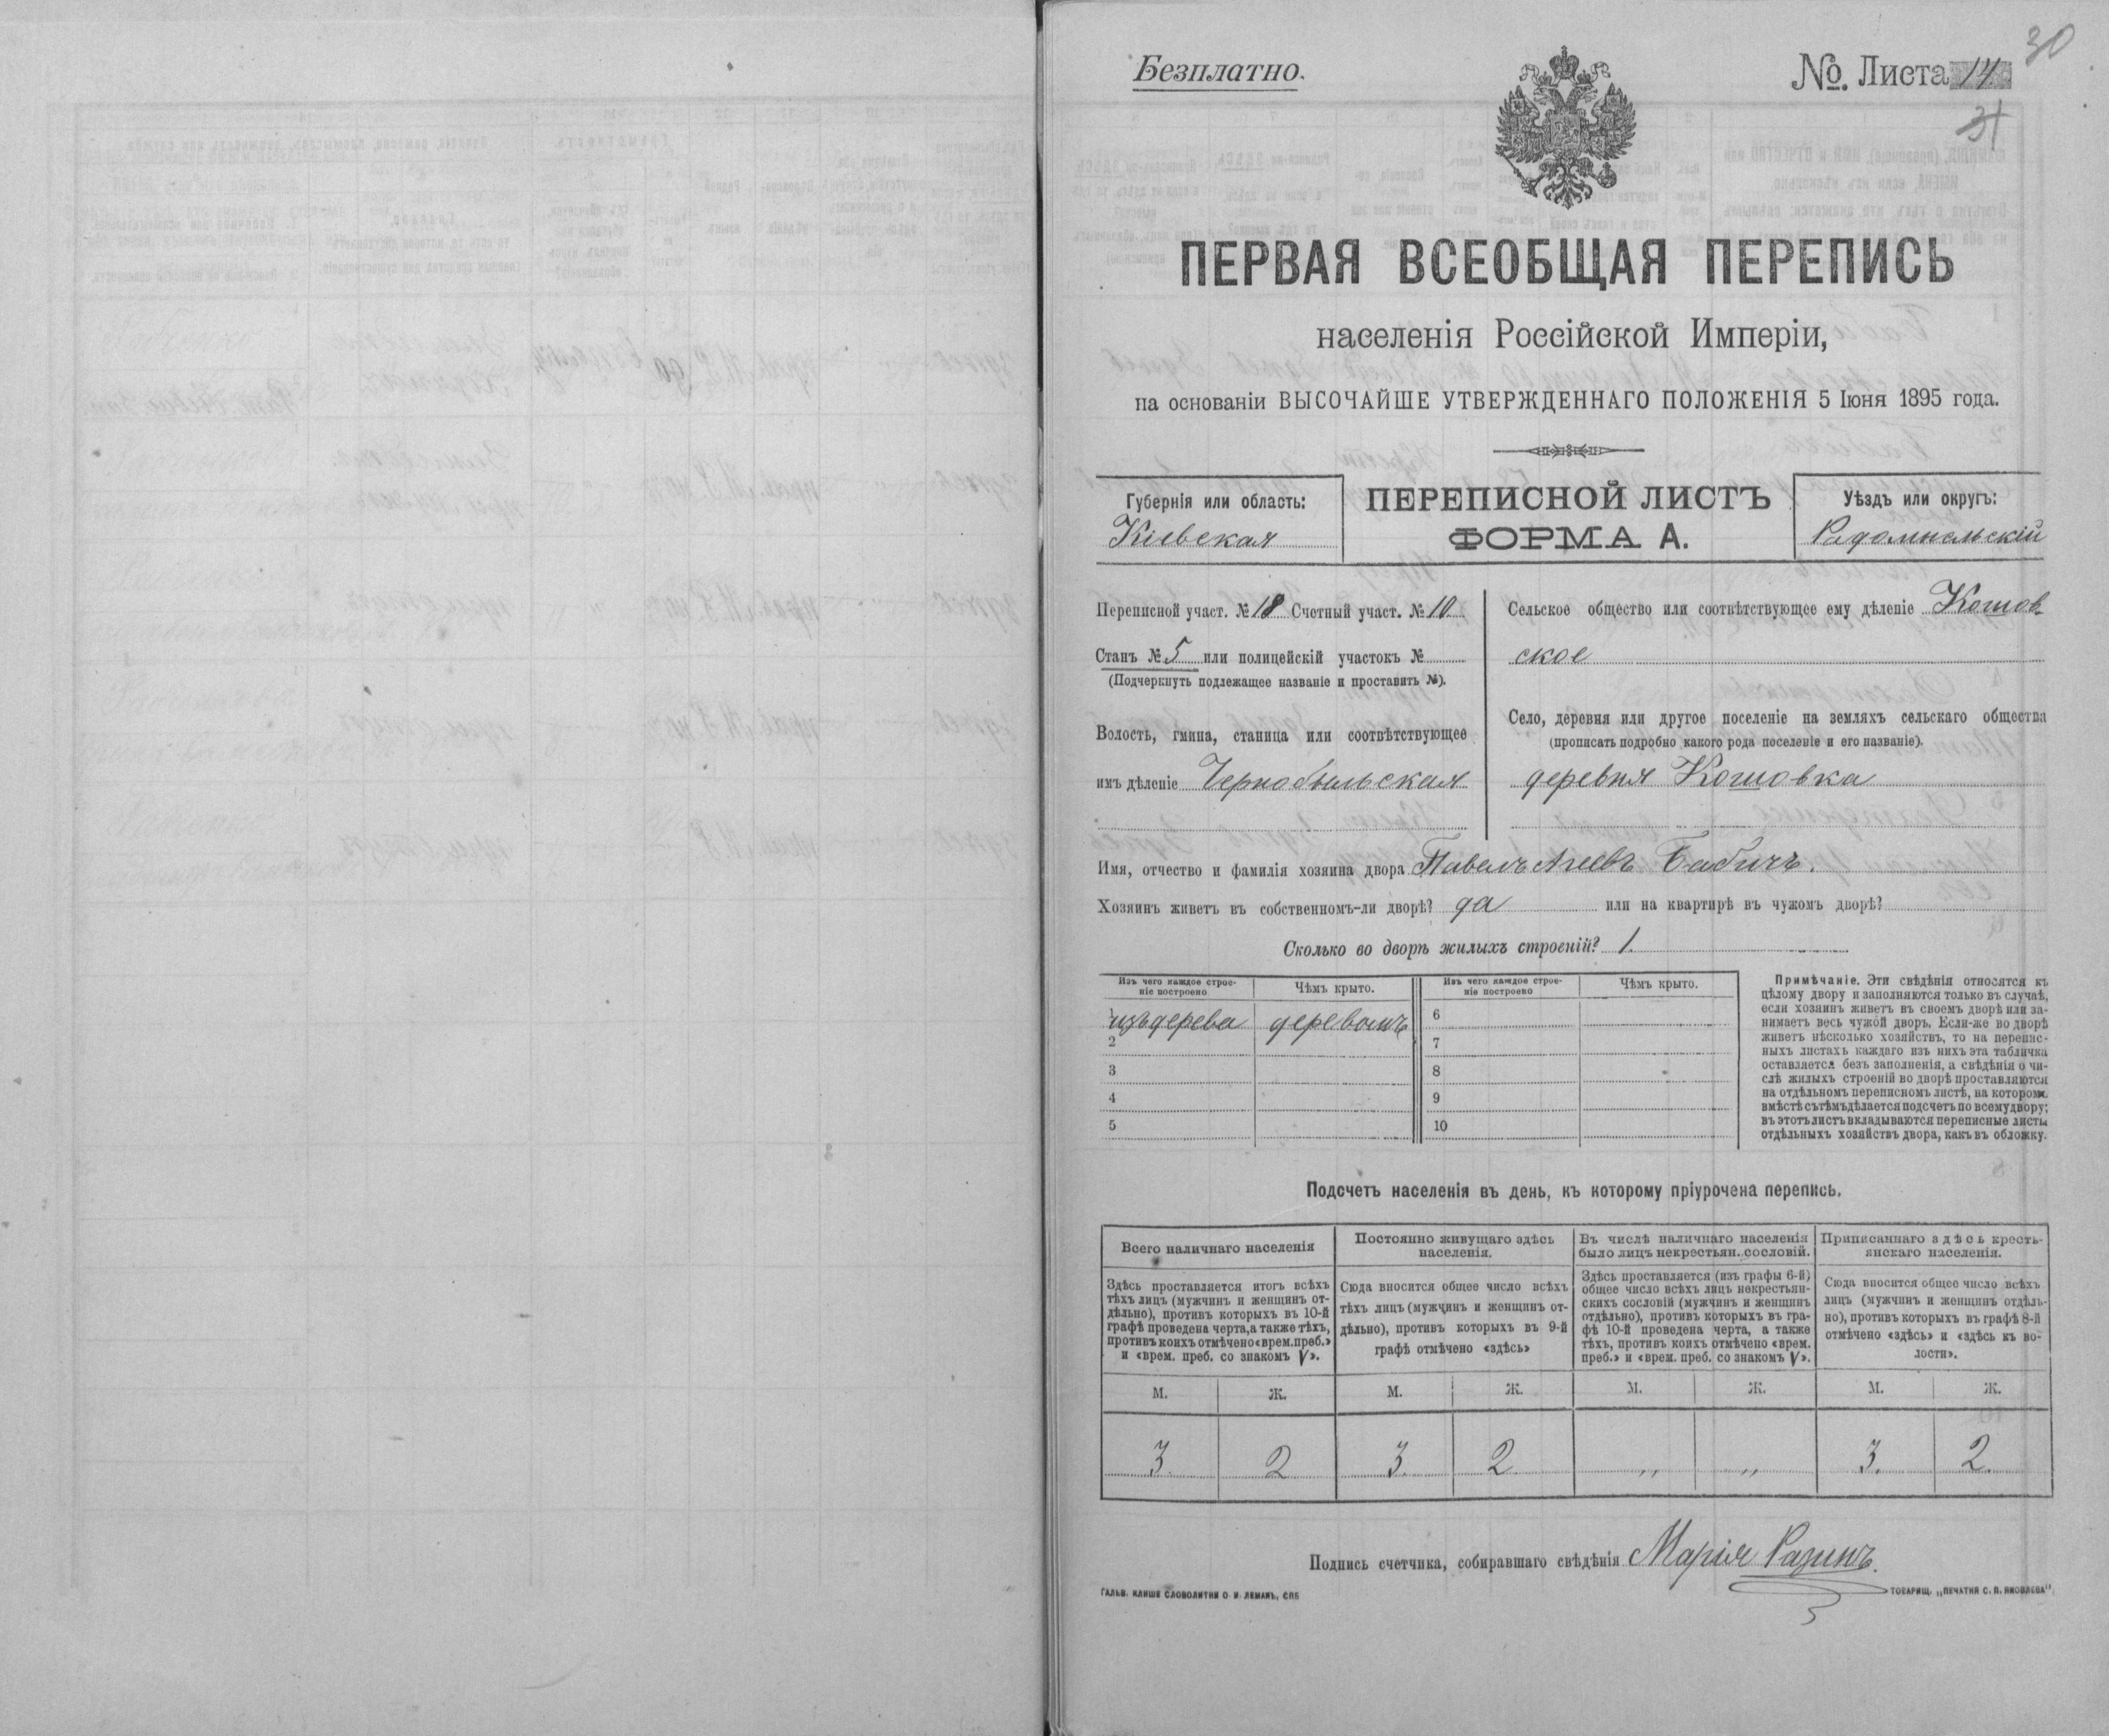 30
Безплатно.
№. Листа 14
31
ПЕРВАЯ ВСЕОБЩАЯ ПЕРЕПИСЬ
населенія Россійской Имперіи,
на основаніи ВЫСОЧАЙШЕ УТВЕРЖДЕННАГО ПОЛОЖЕНІЯ 5 Іюня 1895 года.
Губернія или область:
Кіевская
ПЕРЕПИСНОЙ ЛИСТЪ
ФОРМА А.
Уѣздъ или округъ:
Радомысльскій
Переписной участ. № 18 Счетный участ. № 10
Станъ № 5 или полицейскій участокъ №
(Подчеркнуть подлежащее названіе и проставить №).
Волость, гмина, станица или соотвѣтствующее
имъ дѣленіе Чернобыльская
Сельское общество или соотвѣтствующее ему дѣленіе Кошов
ское
Село, деревня или другое поселеніе на земляхъ сельскаго общества
(прописать подробно какого рода поселеніе и его названіе).
деревня Кошовка
Имя, отчество и фамилія хозяина двора Павелъ Агеевъ Бабичъ.
Хозяинъ живетъ въ собственномъ-ли дворѣ? да или на квартирѣ въ чужомъ дворѣ?
Сколько во дворѣ жилыхъ строеній? 1.
Изъ чего каждое строе-
ніе построено
Чѣмъ крыто.
изъ дерева деревомъ
2
3
4
5
Изъ чего каждое строе-
ніе построено
Чѣмъ крыто.
6
7
8
9
10
Примѣчаніе. Эти свѣдѣнія относятся къ
цѣлому двору и заполняются только въ случаѣ,
если хозяинъ живетъ въ своемъ дворѣ или за-
нимаетъ весь чужой дворъ. Если-же во дворѣ
живетъ нѣсколько хозяйствъ, то на перепис-
ныхъ листахъ каждаго изъ нихъ эта табличка
оставляется безъ заполненія, а свѣдѣнія о чи-
слѣ жилыхъ строеній во дворѣ проставляются
на отдѣльномъ переписномъ листѣ, на которомъ
вмѣстѣ съ тѣмъ дѣлается подсчетъ по всему двору;
въ этотъ листъ вкладываются переписные листы
отдѣльныхъ хозяйствъ двора, какъ въ обложку.
Подсчетъ населенія въ день, къ которому пріурочена перепись.
Всего наличнаго населенія
Здѣсь проставляется итогъ всѣхъ
тѣхъ лицъ (мужчинъ и женщинъ от-
дѣльно), противъ которыхъ въ 10-й
графѣ проведена черта, а также тѣхъ,
противъ коихъ отмѣчено «врем. преб.»
и «врем. преб. со знакомъ V».
Постоянно живущаго здѣсь
населенія.
Сюда вносится общее число всѣхъ
тѣхъ лицъ (мужчинъ и женщинъ от-
дѣльно), противъ которыхъ въ 9-й
графѣ отмѣчено «здѣсь»
Въ числѣ наличнаго населенія
было лицъ некрестьян. сословій.
Здѣсь проставляется (изъ графы 6-й)
общее число всѣхъ лицъ некрестьян-
скихъ сословій (мужчинъ и женщинъ
отдѣльно), противъ которыхъ въ гра-
фѣ 10-й проведена черта, а также
тѣхъ, противъ коихъ отмѣчено «врем.
преб.» и «врем. преб. со знакомъ V».
Приписаннаго здѣсь кресть-
янскаго населенія.
Сюда вносится общее число всѣхъ
лицъ (мужчинъ и женщинъ отдѣль-
но), противъ которыхъ въ графѣ 8-й
отмѣчено «здѣсь» и «здѣсь къ во-
лости».
М. Ж. М. Ж. М. Ж. М. Ж.
3. 2 3. 2 „ „ 3. 2.
Подпись счетчика, собиравшаго свѣдѣнія Марія Разинъ.
ГАЛЬВ. КЛИШЕ СЛОВОЛИТНИ О. И. ЛЕМАНЪ, СПБ
ТОВАРИЩ. „ПЕЧАТНЯ С. П. ЯКОВЛЕВА"